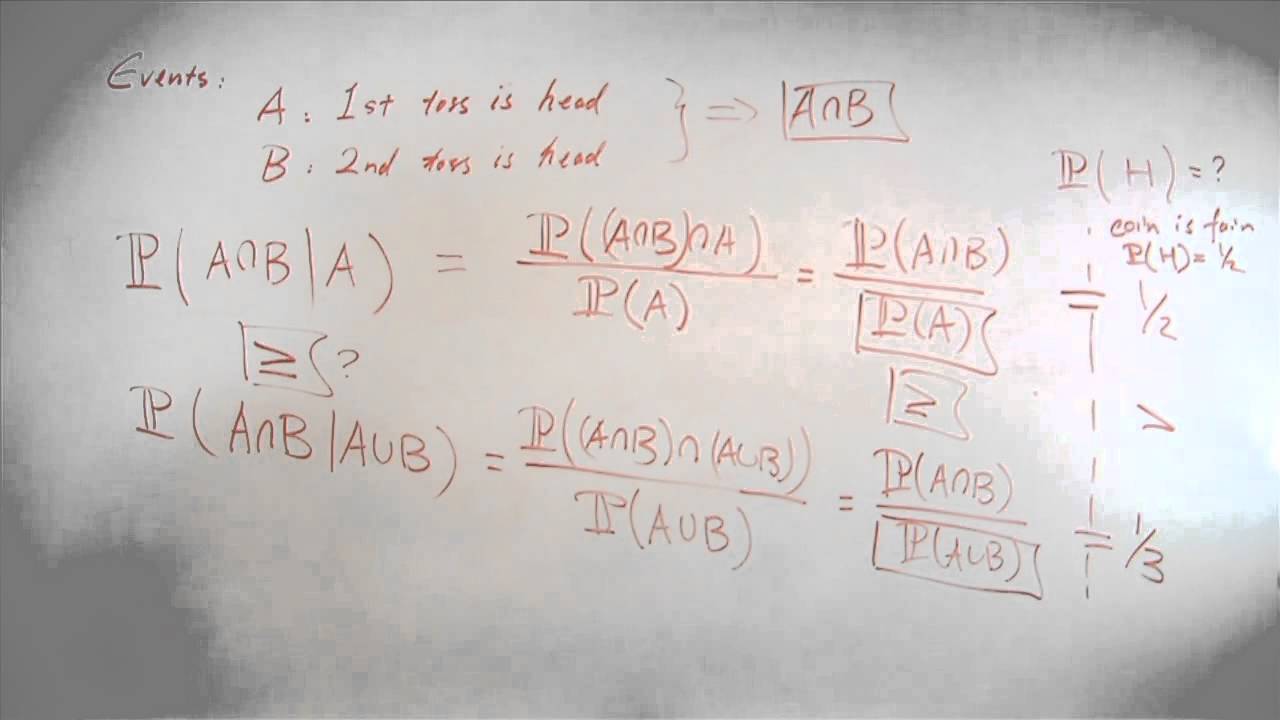 Events:
A : 1st toss is head } ⇒ A∩B
B : 2nd toss is head
ℙ(H) = ?
coin is fair
ℙ(H) = 1/2
ℙ(A∩B | A) = ℙ((A∩B)∩A) / ℙ(A) = ℙ(A∩B) / ℙ(A) = 1/2
≥ ? ≥ >
ℙ(A∩B | A∪B) = ℙ((A∩B)∩(A∪B)) / ℙ(A∪B) = ℙ(A∩B) / ℙ(A∪B) = 1/3